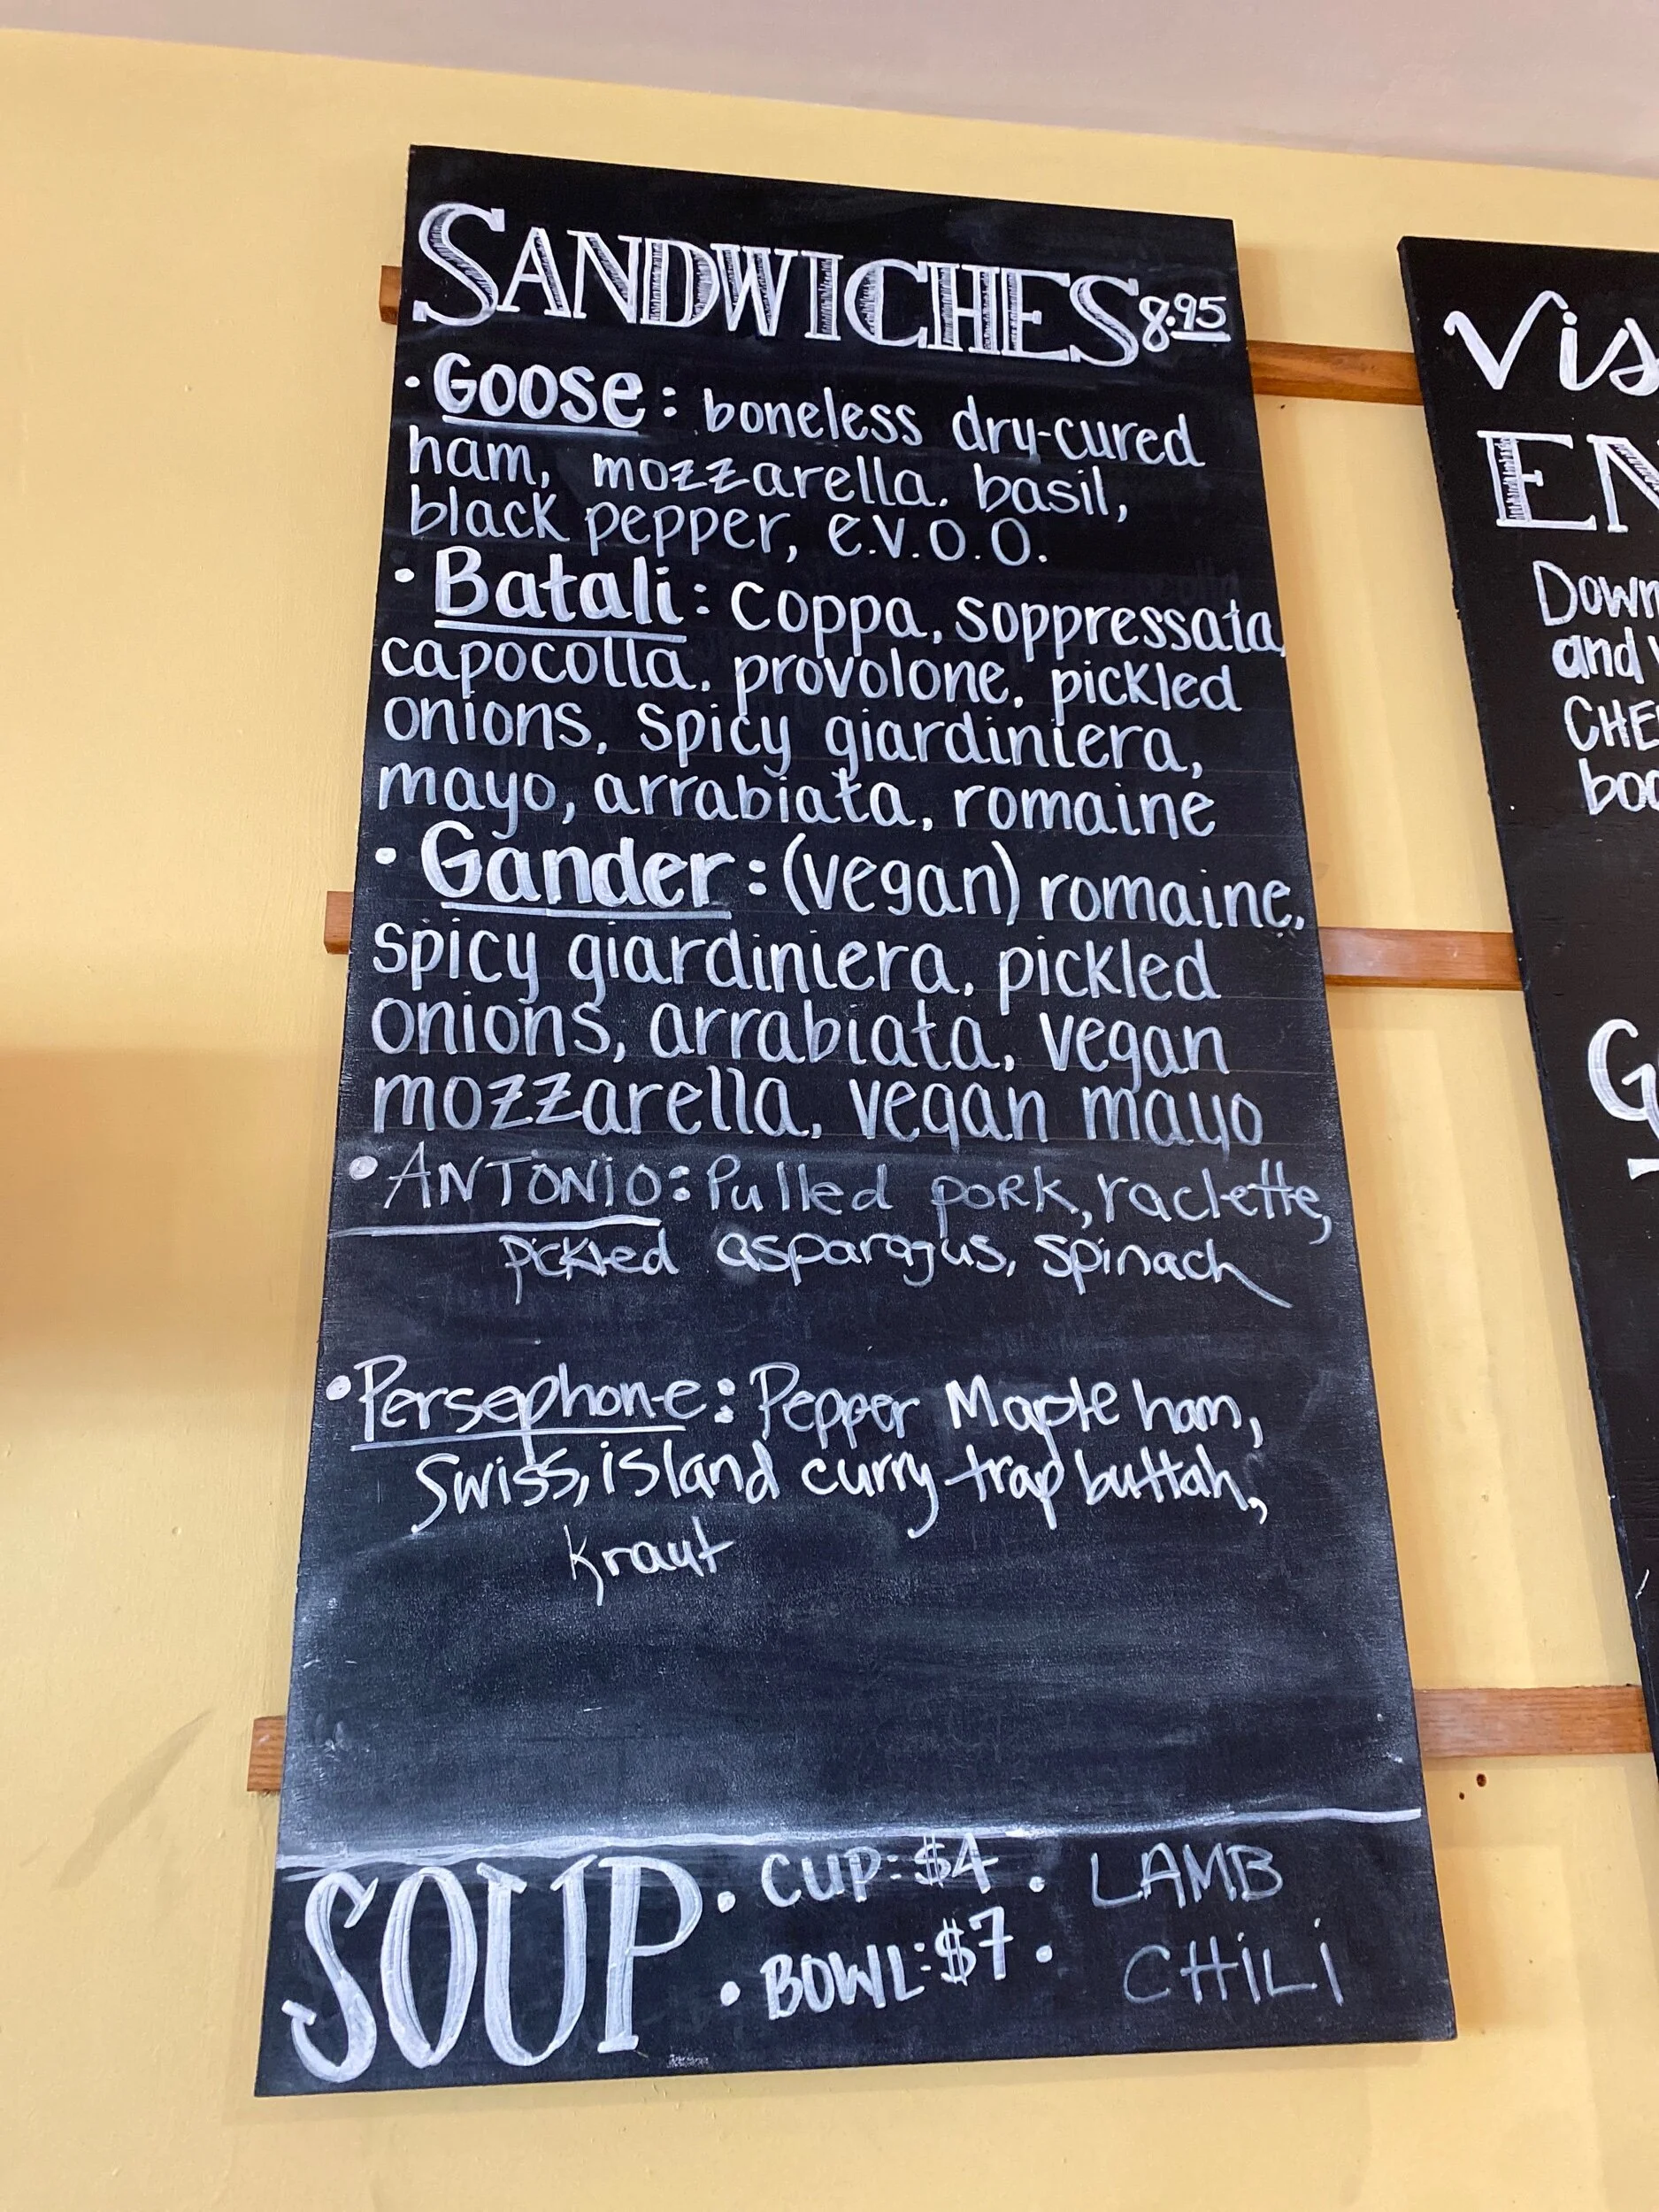 SANDWICHES 8.95
· GOOSE: boneless dry-cured
ham, mozzarella. basil,
black pepper, e.v.o.o.
· Batali: Coppa, soppressata,
capocolla, provolone, pickled
onions, spicy giardiniera,
mayo, arrabiata, romaine
· Gander: (vegan) romaine,
spicy giardiniera, pickled
onions, arrabiata, vegan
mozzarella, vegan mayo
• ANTONIO: Pulled pork, raclette,
pickled asparagus, spinach
• Persephone: Pepper Maple ham,
Swiss, island curry trap buttah,
kraut
SOUP
• CUP: $4 •
• BOWL: $7 •
LAMB
CHILI
Vis
EN
Down
and
CHE
boo
G